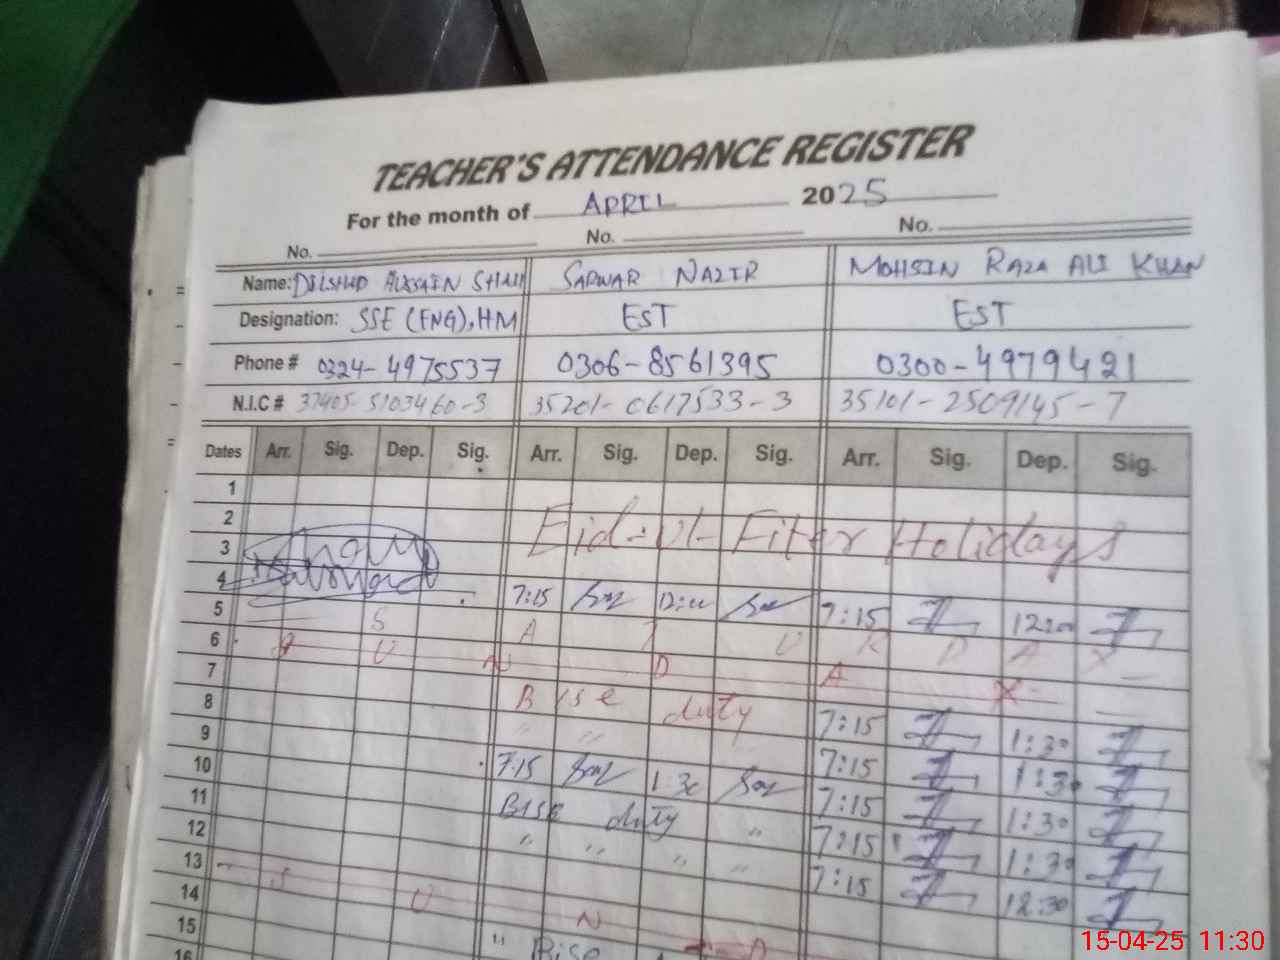 TEACHER'S ATTENDANCE REGISTER
For the month of APRIL 2025
No. No. No.
Name: DILSHAD HUSSAIN SHAH SARWAR NAZIR MOHSIN RAZA ALI KHAN
Designation: SSE (ENG), HM EST EST
Phone # 0324-4975537 0306-8561395 0300-4979421
N.I.C # 37405-5103460-3 35201-0617533-3 35101-2509145-7
Dates Arr. Sig. Dep. Sig. Arr. Sig. Dep. Sig. Arr. Sig. Dep. Sig.
1
2
3 Eid-ul-Fiter Holidays
4
5 7:15 12:00 7:15 12:00
6 S A T U R D A Y
7 S U N D A Y
8 Bise duty 7:15 1:30
9 " " 7:15 1:30
10 7:15 1:30 7:15 1:30
11 BISE duty " 7:15 1:30
12 " " " " 7:15 12:30
13 S U N D A
14
15 " Bise
16
15-04-25 11:30